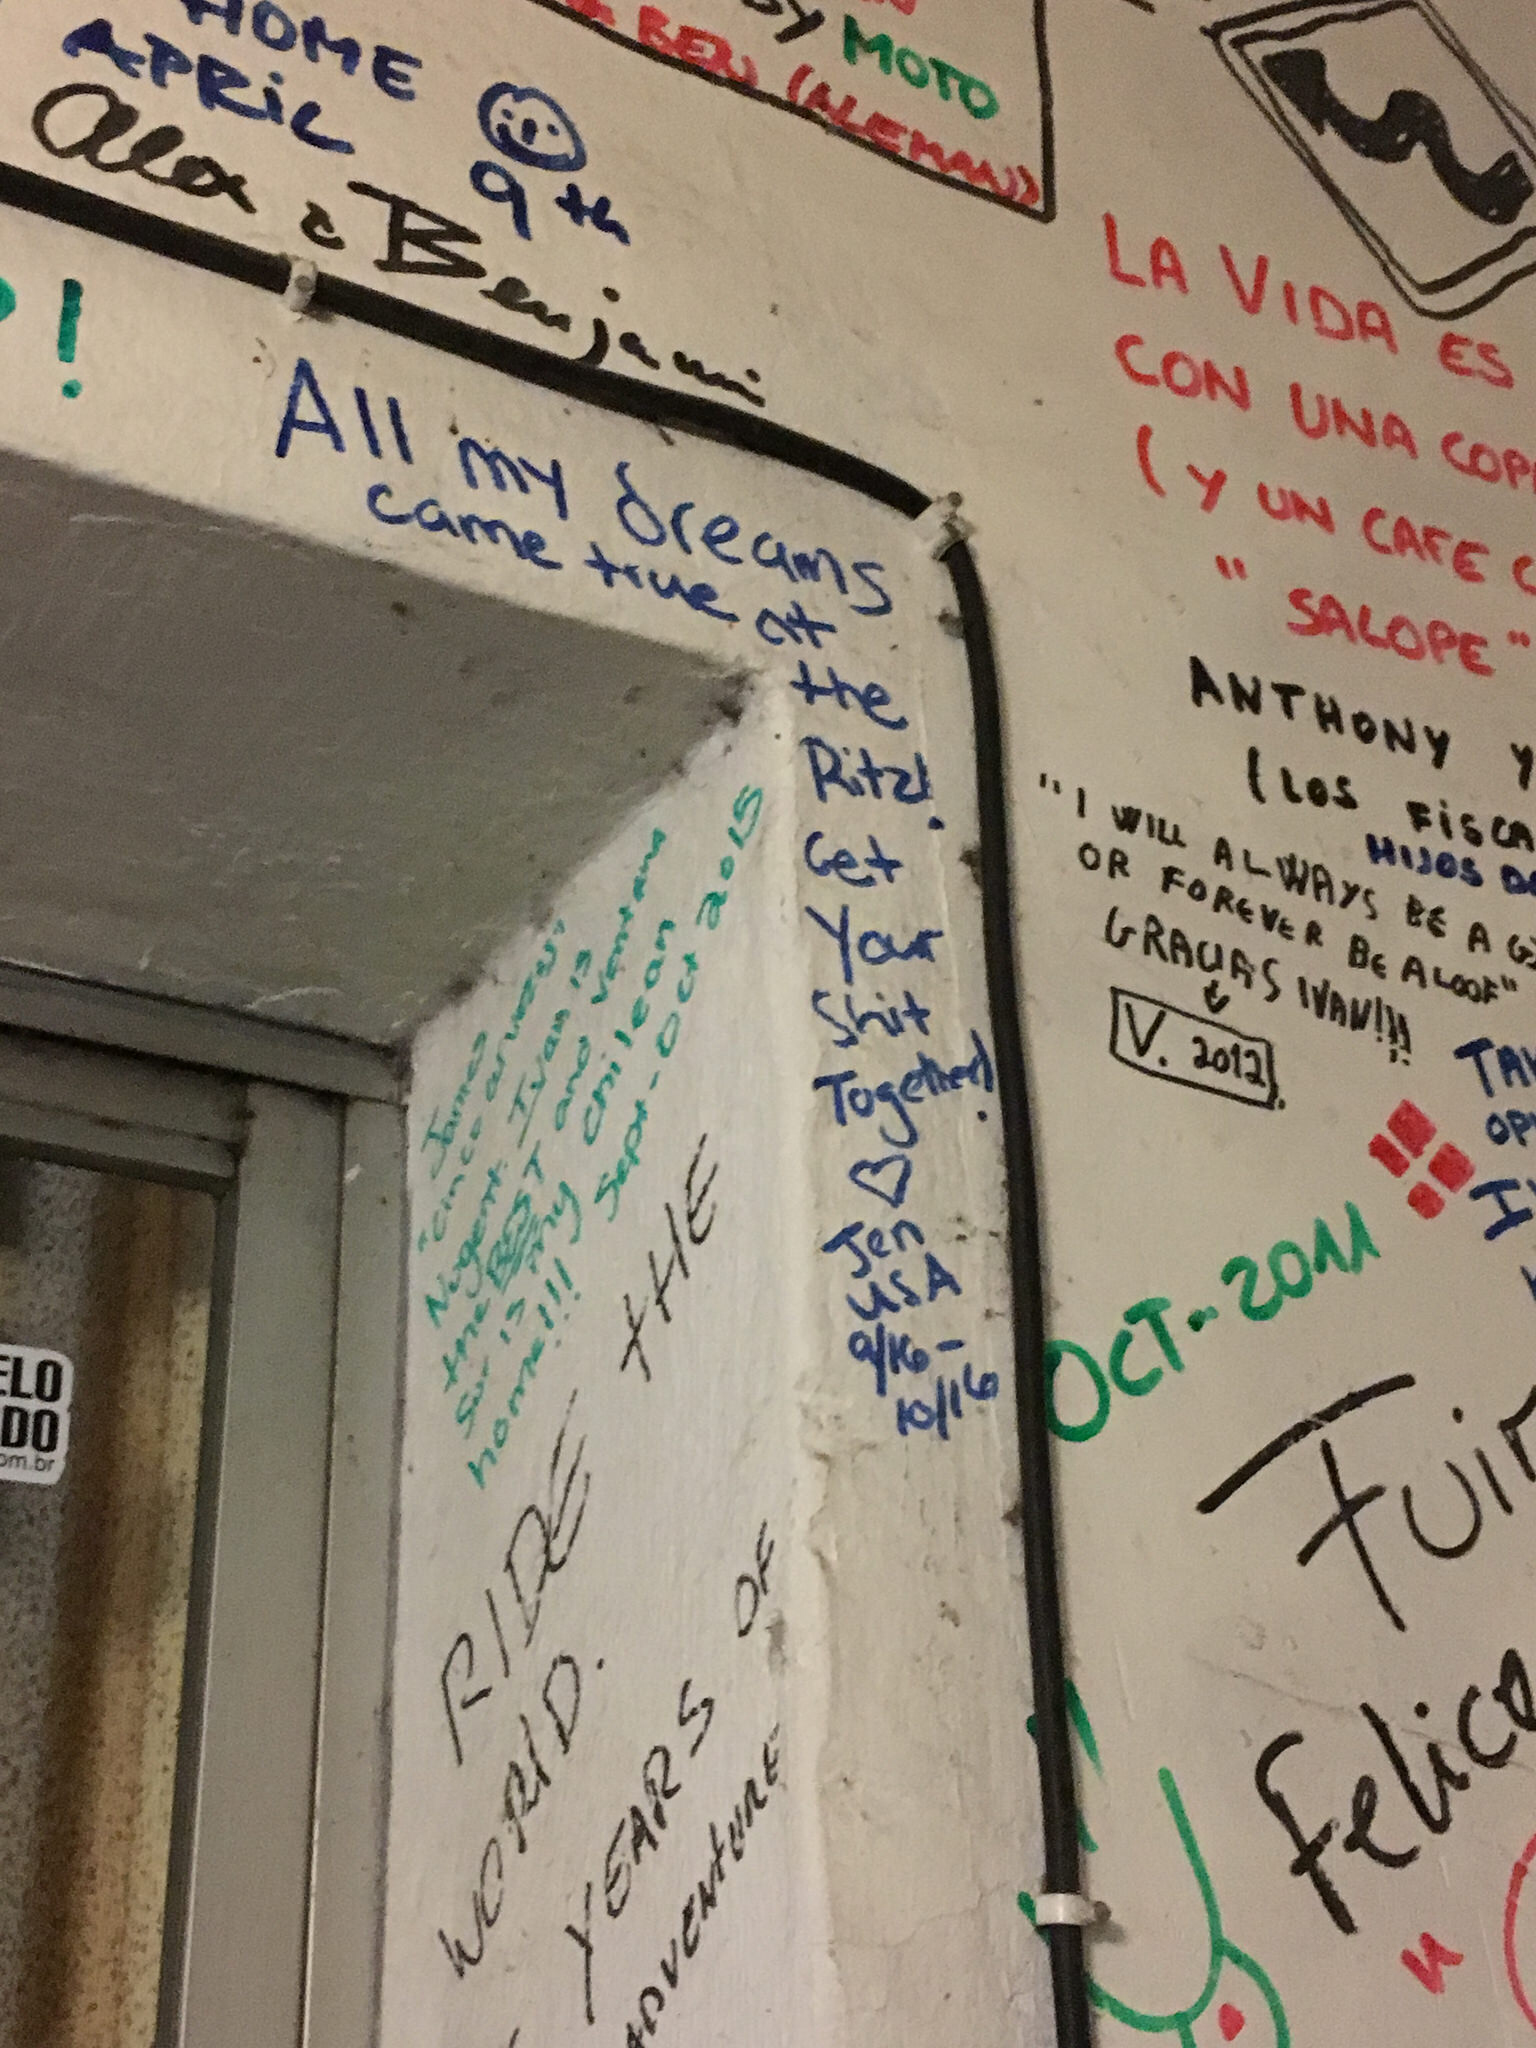 HOME
APRIL 9th
Alex & Benjami
!
MOTO
BEN (ALEMAN)
All my dreams
came true at
the
Ritz!
Get
Your
Shit
Together!
Jen
USA
9/16-
10/16
James
"cinco
Nugent. Ivan is
the BEST and Ventana
Sur is my chilean
home!!! Sept-Oct 2015
RIDE THE
WORLD.
YEARS OF
ADVENTURE
ELO
DO
om.br
LA VIDA ES
CON UNA COP
(Y UN CAFE C
"SALOPE"
ANTHONY Y
(LOS FISCA
HIJOS DE
"I WILL ALWAYS BE A G
OR FOREVER BE A LOOF"
GRACIAS IVAN!!!
V. 2012
TAN
OP
OCT-2011
Tuir
Felico